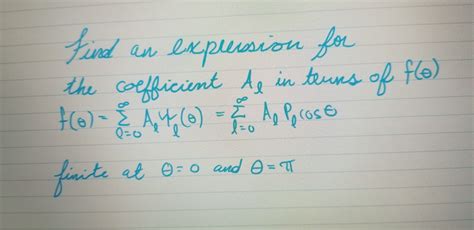 Find an expression for
the coefficient A_ℓ in terms of f(θ)
f(θ) = ∑_{ℓ=0}^{∞} A_ℓ Ψ_ℓ(θ) = ∑_{ℓ=0}^{∞} A_ℓ P_ℓ cosθ
finite at θ=0 and θ=π